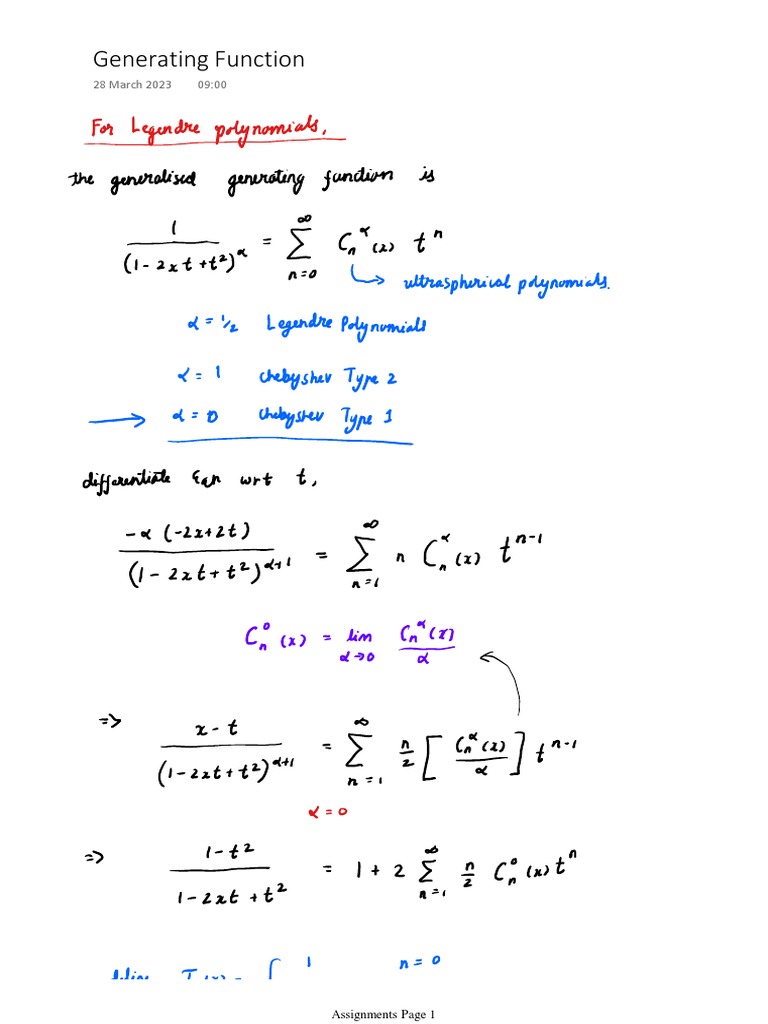 Generating Function
28 March 2023 09:00
For Legendre polynomials,
the generalised generating function is
1 / (1 - 2xt + t²)^α = ∑_{n=0}^{∞} C_n^α (x) t^n
↳ ultraspherical polynomials.
α = 1/2 Legendre Polynomials
α = 1 Chebyshev Type 2
→ α = 0 Chebyshev Type 1
differentiate Eqn wrt t,
-α (-2x+2t) / (1 - 2xt + t²)^{α+1} = ∑_{n=1}^{∞} n C_n^α (x) t^{n-1}
C_n^0 (x) = lim_{α→0} C_n^α (x) / α
=> x - t / (1 - 2xt + t²)^{α+1} = ∑_{n=1}^{∞} n/2 [ C_n^α (x) / α ] t^{n-1}
α = 0
=> 1 - t² / 1 - 2xt + t² = 1 + 2 ∑_{n=1}^{∞} n/2 C_n^0 (x) t^n
1 n = 0
Assignments Page 1